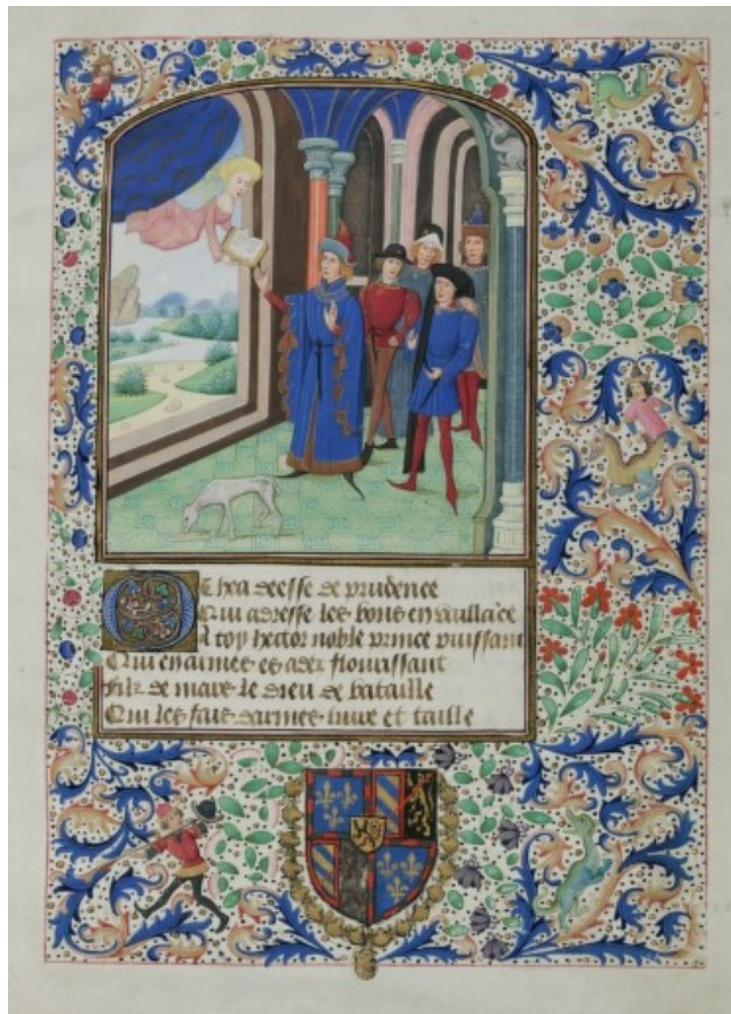 Othea deesse de prudence
Qui adresse les bons en vaillāce
A toy hector noble prince puissant
Qui en armes es adez flourissant
filz de mars le dieu de bataille
Qui les fais darmes liure et taille